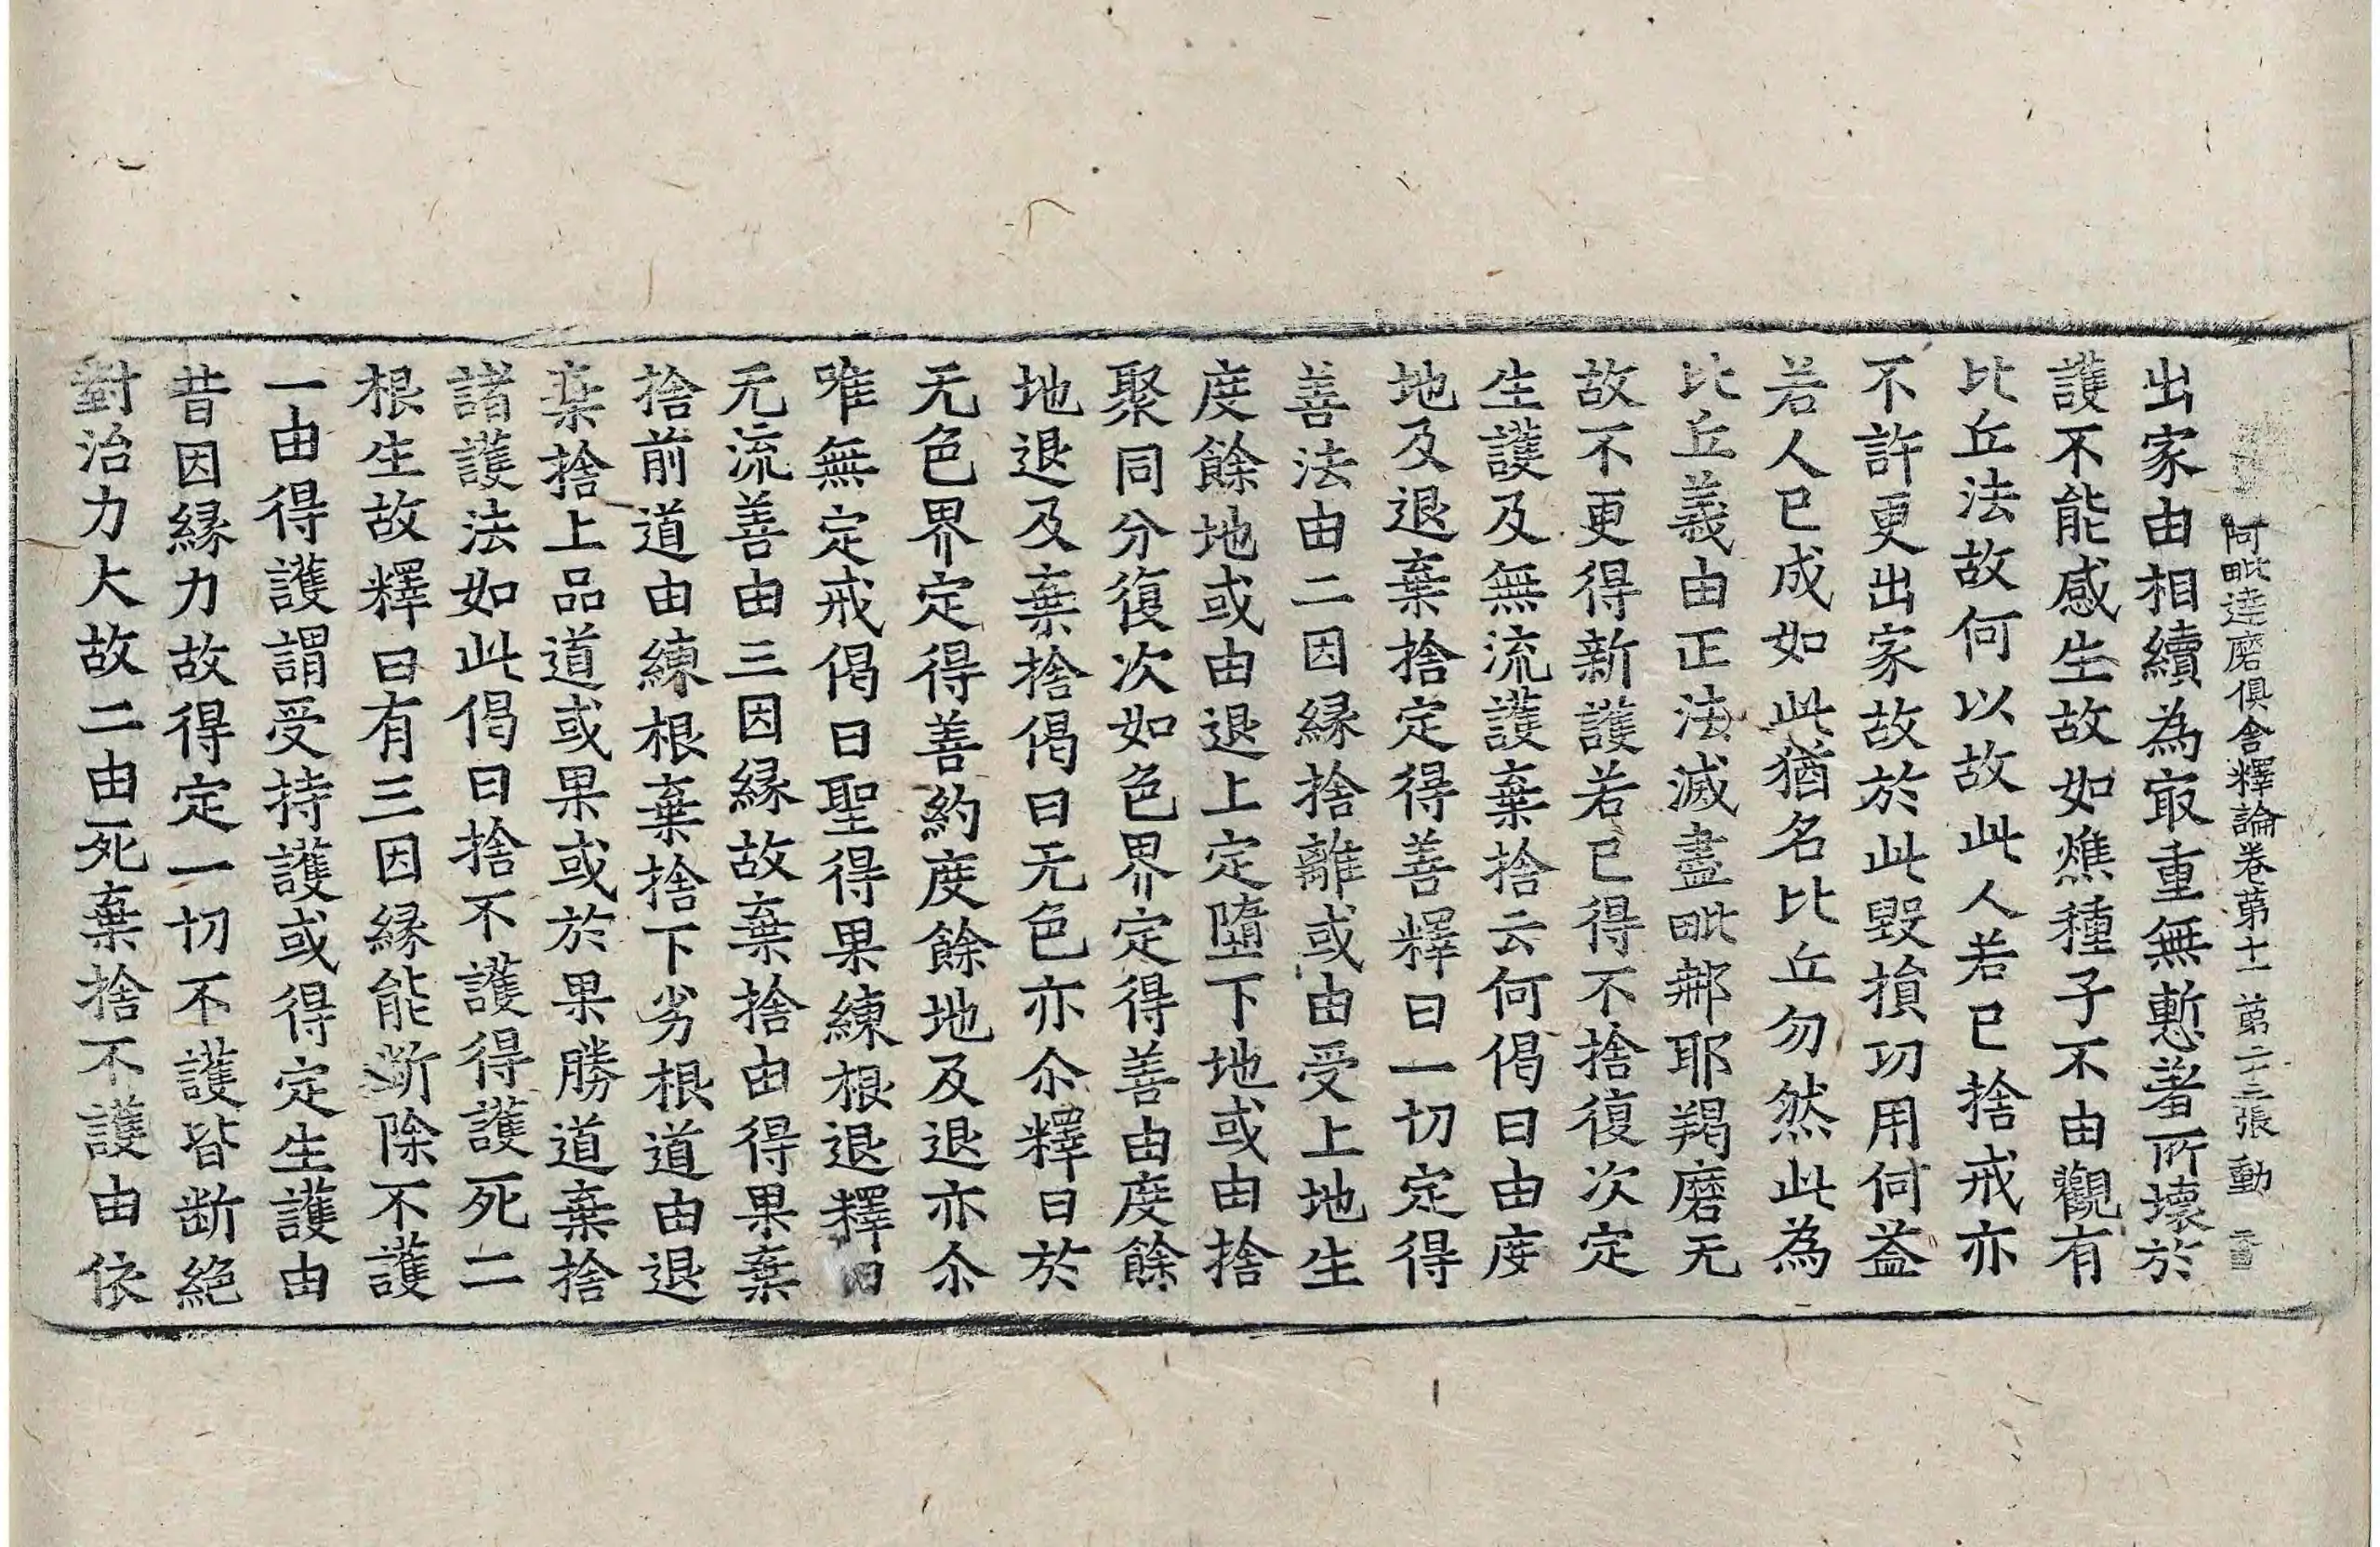 阿毗達磨俱舍釋論卷苐十一 苐二十三張 動
出家由相續為㝡重無慙著所壞於
護不能感生故如燋種子不由觀有
比丘法故何以故此人若已捨戒亦
不許更出家故於此毀損功用何益
若人已成如此猶名比丘勿然此為
比丘義由正法滅盡毗那耶羯磨无
故不更得新護若已得不捨復次定
生護及無流護棄捨云何偈曰由度
地及退棄捨定得善釋曰一切定得
善法由二因緣捨離或由受上地生
度餘地或由退上定墮下地或由捨
聚同分復次如色界定得善由度餘
地退及棄捨偈曰无色亦尒釋曰於
无色界定得善約度餘地及退亦尒
唯無定戒偈曰聖得果練根退釋曰
无流善由三因緣故棄捨由得果棄
捨前道由練根棄捨下劣根道由退
棄捨上品道或果或於果勝道棄捨
諸護法如此偈曰捨不護得護死二
根生故釋曰有三因緣能斷除不護
一由得護謂受持護或得定生護由
昔因緣力故得定一切不護皆斷絕
對治力大故二由死棄捨不護由依